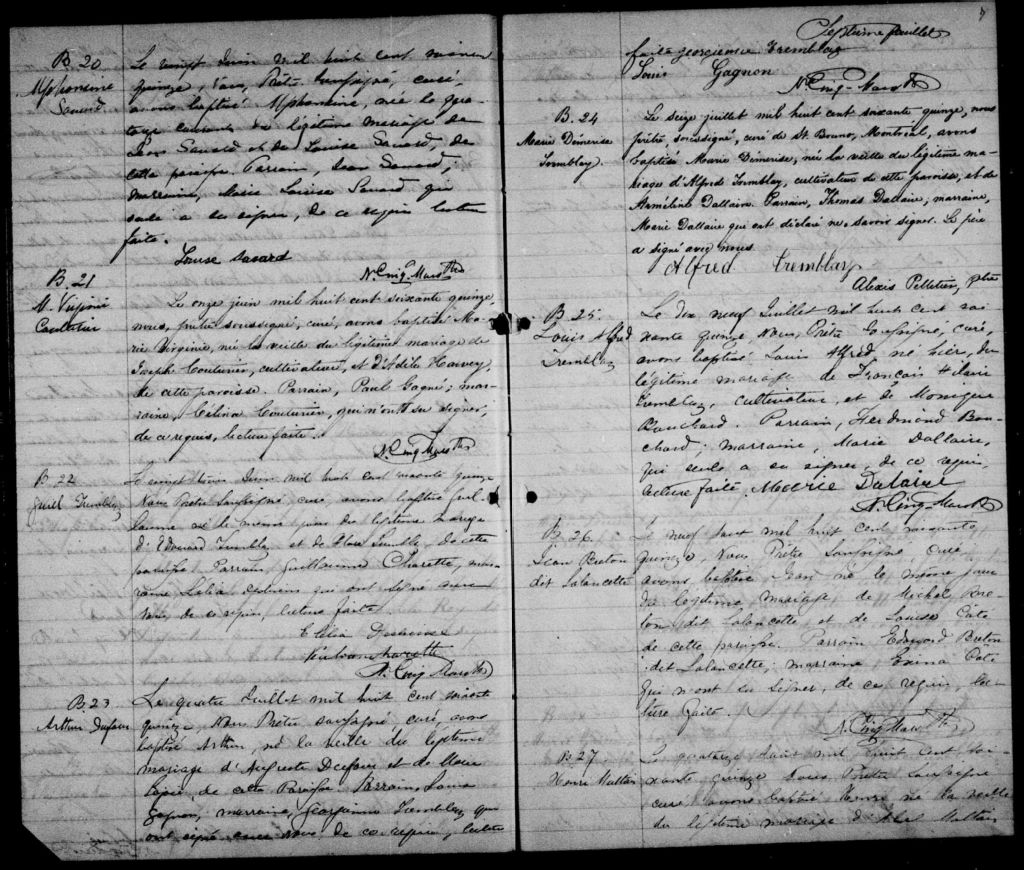 B. 20
Alphonsine
Savard
Le vingt Juin mil huit cent soixante
quinze, Nous, Prêtre soussigné, curé,
avons baptisé Alphonsine, née le qua-
torze courant du légitime mariage de
Jean Savard et de Louise Savard, de
cette paroisse. Parrain, Jean Savard;
marraine, Marie Louise Savard qui
seule a su signer, de ce requis lecture
faite.
Louise Savard
N. Cinq-Mars Ptre
B. 21
M. Virginie
Couturier
Le onze juin mil huit cent soixante quinze,
nous, prêtre soussigné, curé, avons baptisé Ma-
rie Virginie, née la veille du légitime mariage de
Joseph Couturier, cultivateur, et d'Adèle Harvey,
de cette paroisse. Parrain, Paul Gagné; mar-
raine, Célina Couturier, qui n'ont su signer,
de ce requis, lecture faite.
N. Cinq Mars Ptre
B. 22
Tremblay
Juin mil huit cent soixante quinze
Nous Prêtre soussigné curé avons baptisé
né le même jour du légitime mariage
d'Edouard Tremblay et de de cette
paroisse Parrain Guillaume Charette, mar-
raine qui ont signé avec
nous, de ce requis, lecture faite
Charette
N. Cinq Mars Ptre
B. 23
Arthur Dufour
Le quatre Juillet mil huit cent soixante
quinze, Nous Prêtre soussigné curé, avons
baptisé Arthur, né la veille du légitime
mariage d'Auguste Dufour et de Marie
de cette Paroisse Parrain, Louis
Gagnon, marraine, Georgianna Tremblay qui
ont signé avec nous de ce requis, lecture
7
Septième feuillet
faite georgienne Tremblay
Louis Gagnon
N. Cinq-Mars Ptre
B. 24
Marie Démerise
Tremblay.
Le seize juillet mil huit cent soixante quinze, nous
prêtre, soussigné, curé de St. Bruno, Montréal, avons
baptisé Marie Démerise, née la veille du légitime ma-
riage d'Alfred Tremblay, cultivateur de cette paroisse, et de
Arméline Dallaire. Parrain, Thomas Dallaire, marraine,
Marie Dallaire qui ont déclaré ne savoir signer. Le père
a signé avec nous
Alfred Tremblay
Alexis Pelletier, ptre
B. 25.
Louis Alfred
Tremblay
Le Dix neuf Juillet mil huit cent soi
xante quinze, Nous, Prêtre Soussigné, curé,
avons baptisé Louis Alfred, né hier, du
légitime mariage de François Hilaire
Tremblay, cultivateur, et de Monique
Bouchard. Parrain, Ferdinand Bou-
chard; marraine, Marie Dallaire,
qui seule a su signer, de ce requis,
lecture faite, Marie Dalaire
N. Cinq-Mars Ptre
B. 26.
Jean Breton
dit Lalancette
Le neuf Août mil huit cent soixante
quinze, Nous Prêtre Soussigné curé
avons baptisé Jean né le même jour
du légitime mariage de Michel Bre-
ton dit Lalancette et de Louise Côté
de cette paroisse. Parrain Edouard Breton
dit Lalancette; marraine Côté
qui n'ont su signer, de ce requis, lec-
ture faite.
N. Cinq Mars Ptre
B. 27
Henri Maltais
Le quatorze Août mil huit cent soi-
xante quinze Nous Prêtre Soussigné
curé avons baptisé Henri né la veille
du légitime mariage d'Abel Maltais